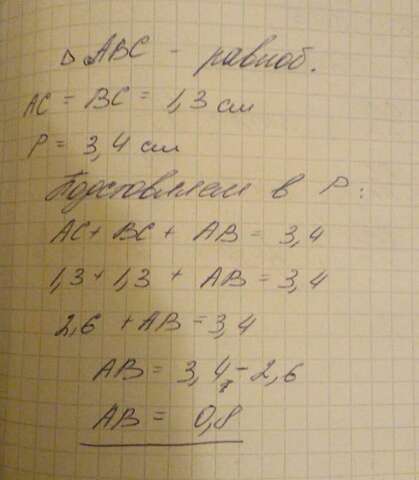 △ ABC - равноб.
AC = BC = 1,3 см
P = 3,4 см
Подставляем в P:
AC + BC + AB = 3,4
1,3 + 1,3 + AB = 3,4
2,6 + AB = 3,4
AB = 3,4 - 2,6
AB = 0,8